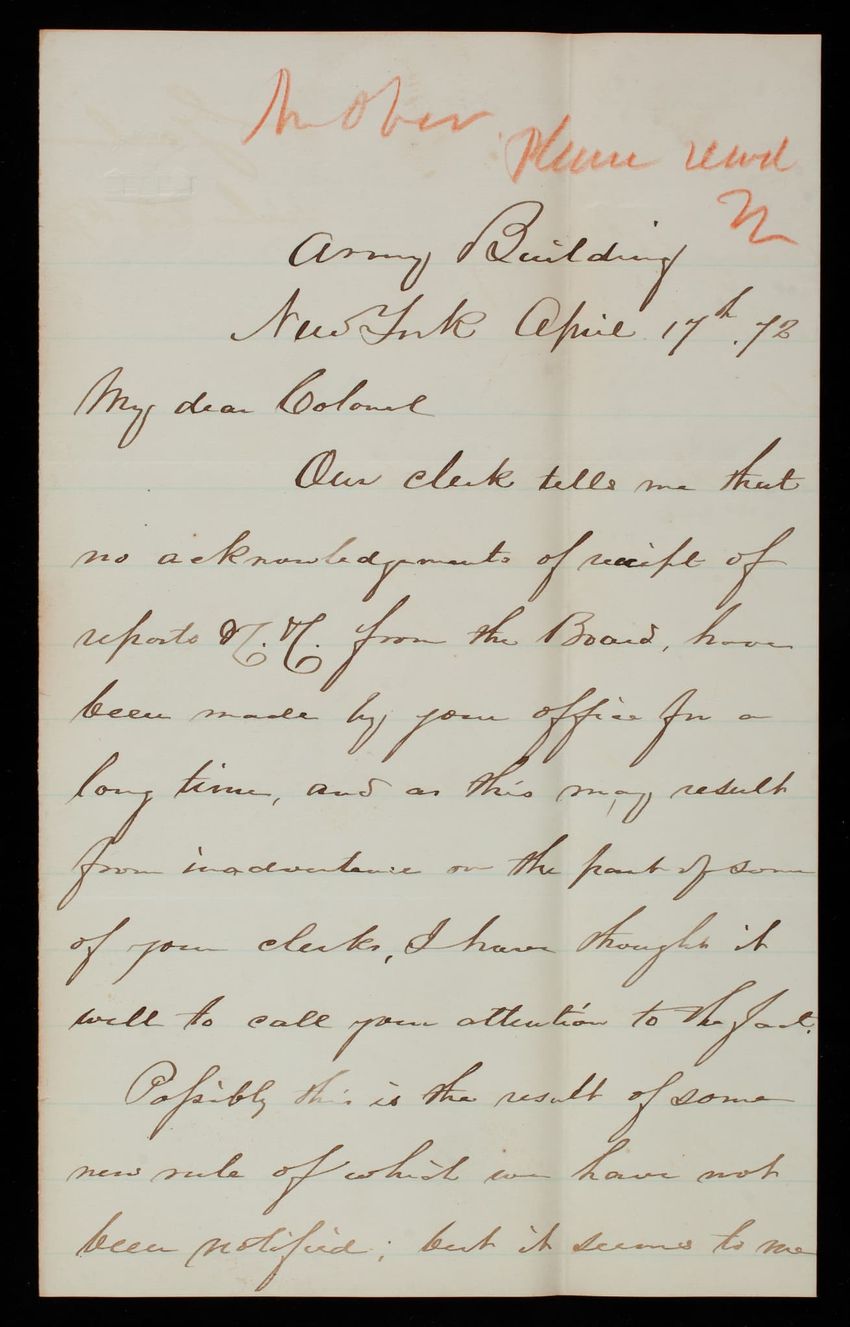 Please read
Army Building
New York April 17th. 72
My dear Colonel
Our clerk tells me that
no acknowledgements of receipt of
reports &c. &c. from the Board, have
been made by your office for a
long time, and as this may result
from inadvertence on the part of some
of your clerks, I have thought it
well to call your attention to the fact.
Possibly this is the result of some
new rule of which we have not
been notified; but it seems to me